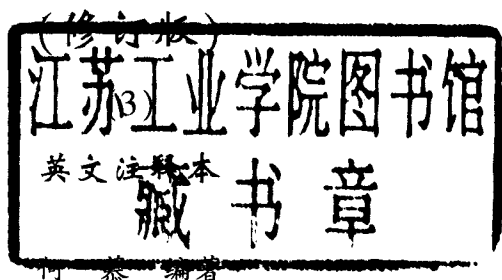 （修订版）
江苏工业学院图书馆
(3)
英文注释本
藏书章
何慕 编著